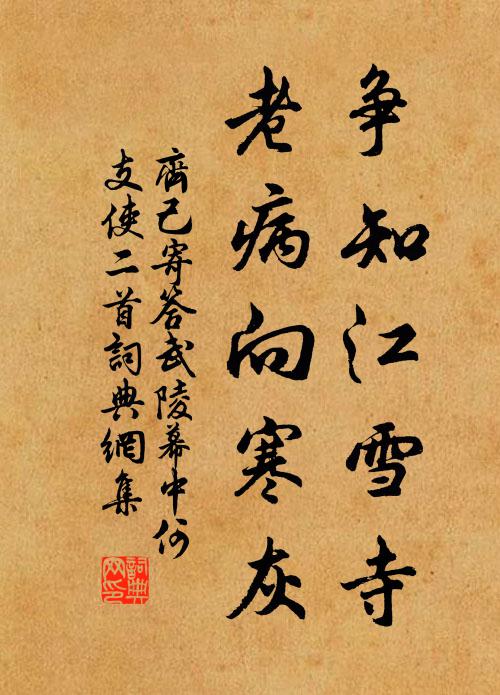 争知江雪寺
老病向寒灰
齊己寄答武陵幕中何
支使二首詞典網集
詞典
网印